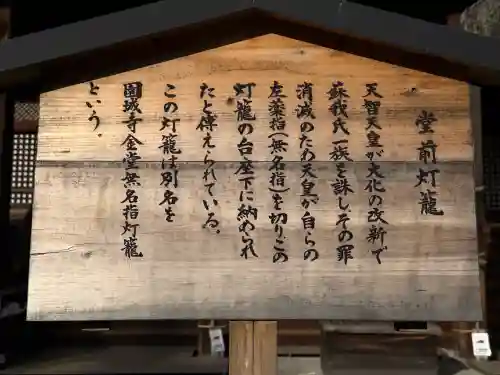 堂前灯籠
天智天皇が大化の改新で
蘇我氏一族を誅しその罪
消滅のため天皇が自らの
左薬指(無名指)を切りこの
灯籠の台座下に納められ
たと傳えられている。
この灯籠は別名を
園城寺金堂無名指灯籠
という。